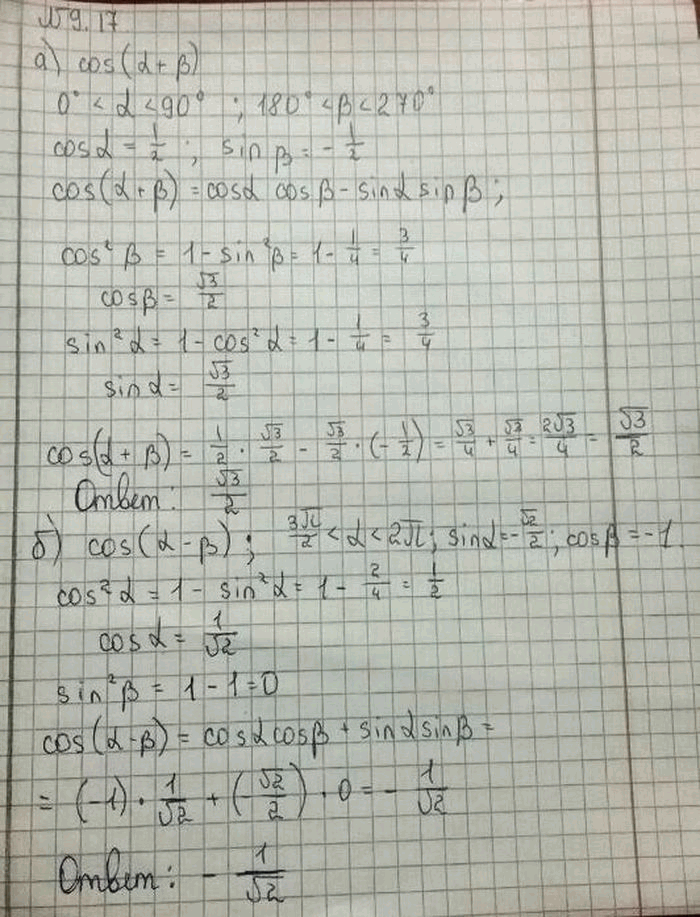 №9.17
а) cos(α+β)
0° < α < 90° ; 180° < β < 270°
cosα = 1/2 ; sinβ = -1/2
cos(α+β) = cosα cosβ - sinα sinβ ;
cos²β = 1 - sin²β = 1 - 1/4 = 3/4
cosβ = √3/2
sin²α = 1 - cos²α = 1 - 1/4 = 3/4
sinα = √3/2
cos(α+β) = 1/2 · √3/2 - √3/2 · (-1/2) = √3/4 + √3/4 = 2√3/4 = √3/2
Ответ: √3/2
б) cos(α-β) ; 3π/2 < α < 2π ; sinα = -√2/2 ; cosβ = -1
cos²α = 1 - sin²α = 1 - 2/4 = 1/2
cosα = 1/√2
sin²β = 1 - 1 = 0
cos(α-β) = cosα cosβ + sinα sinβ =
= (-1) · 1/√2 + (-√2/2) · 0 = - 1/√2
Ответ: - 1/√2